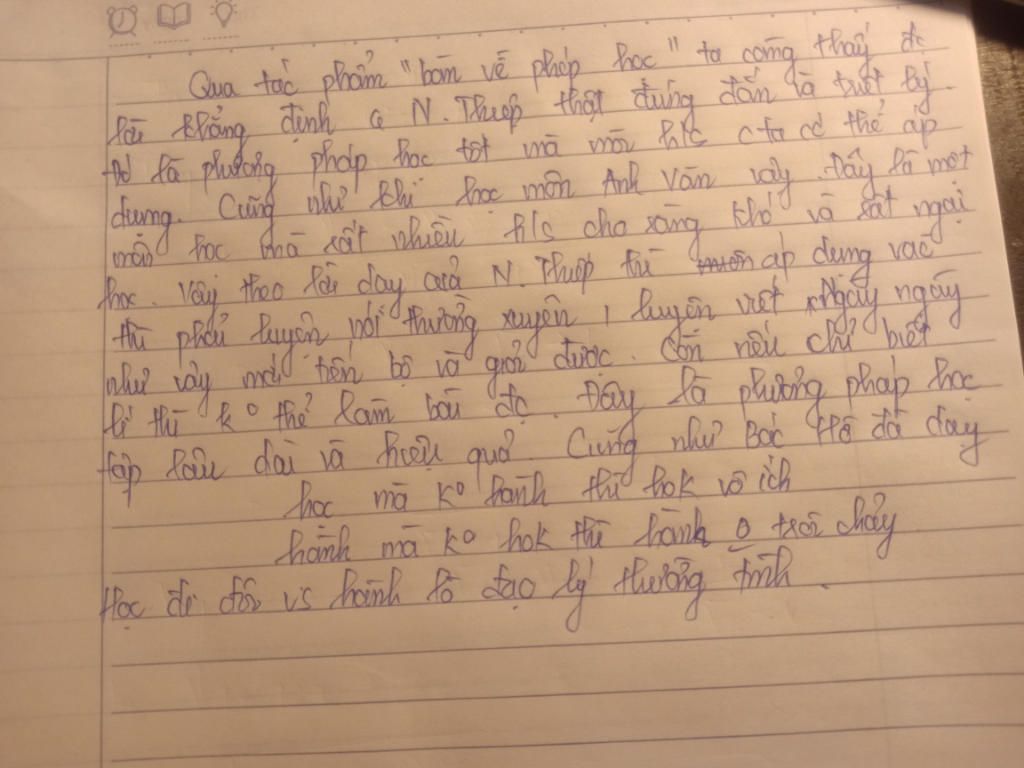 Qua tác phẩm "bàn về phép học" ta càng thấy đc
lời khẳng định q N. Thiếp thật đúng đắn và triết lý.
Đó là phương pháp học tốt mà mỗi h/s cta có thể áp
dụng. Cũng như khi học môn Anh Văn vậy. Đây là một
môn học mà rất nhiều h/s cho rằng khó và rất ngại
học. Vậy theo lời dạy của N. Thiếp thì áp dụng vào
thì phải luyện nói thường xuyên, luyện viết Ngày ngày
như vậy mới tiến bộ và giỏi được. Còn nếu chỉ biết
lí thì k° thể làm bài đc. Đây là phương pháp học
tập lâu dài và hiệu quả. Cũng như Bác Hồ đã dạy
học mà k° hành thì hok vô ích
hành mà k° hok thì hành o trôi chảy
Học đi đôi vs hành là đạo lý thường tình.